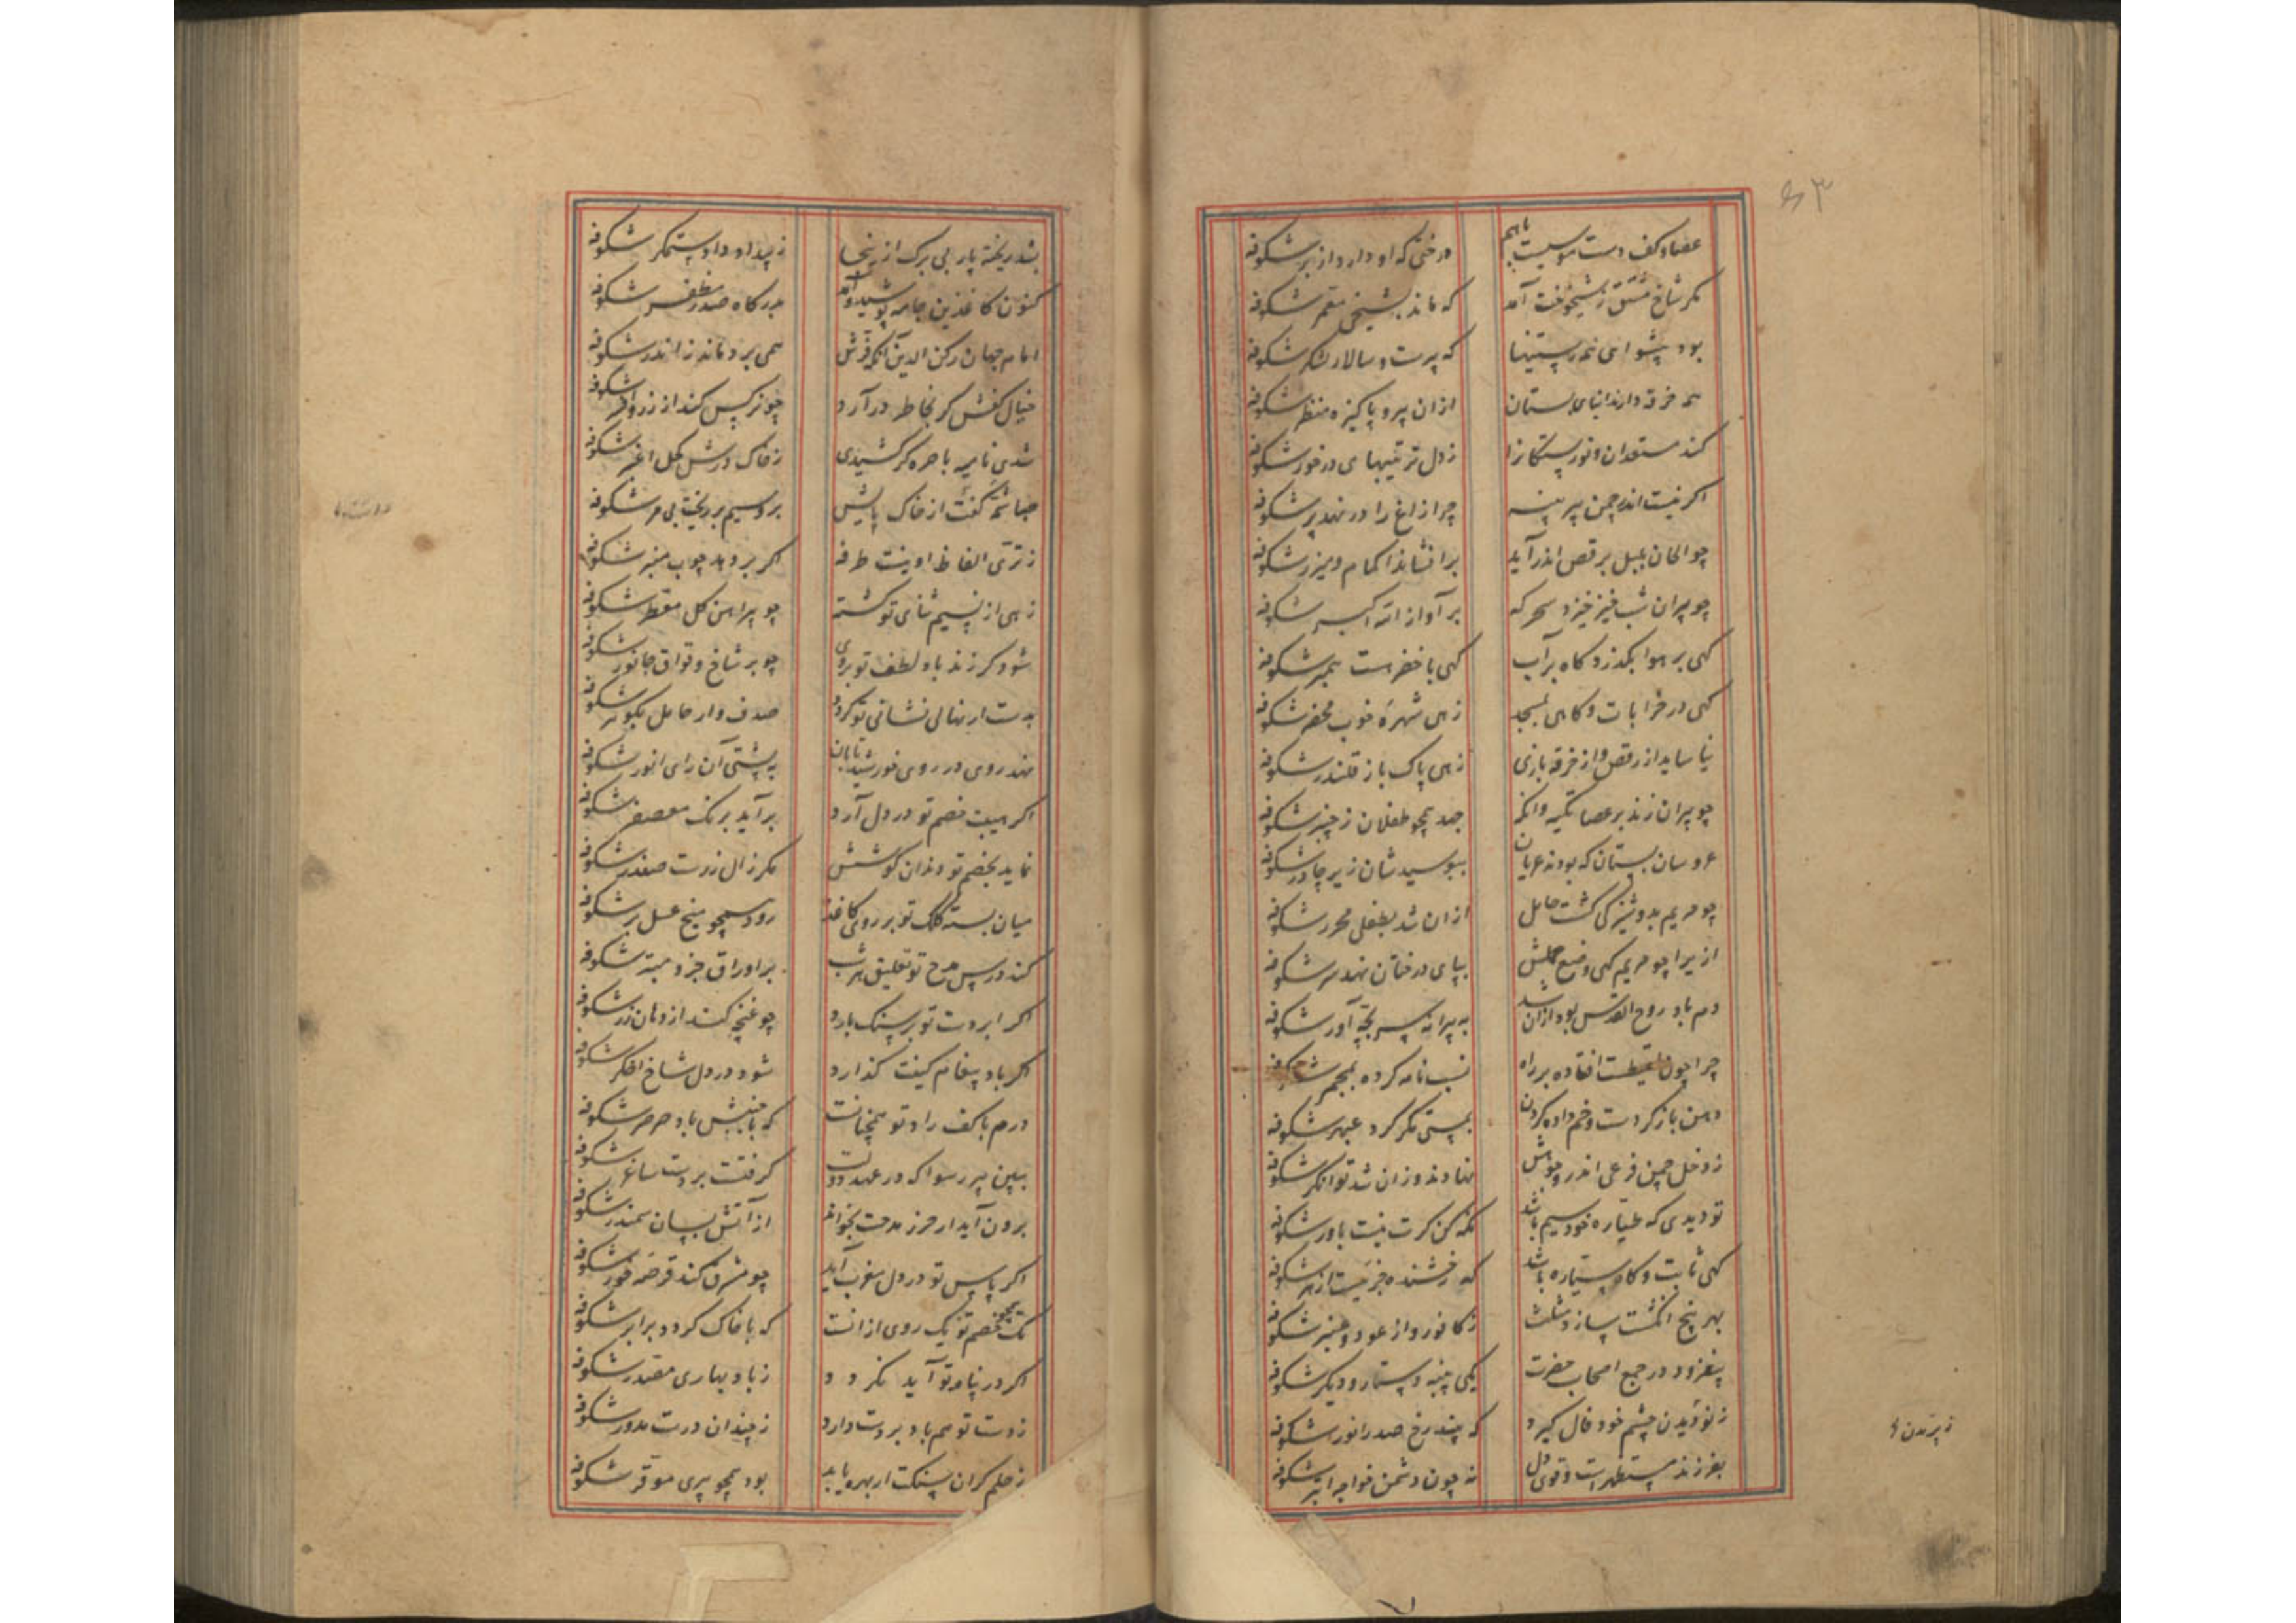 ۶۳
عصا و کف دست موسیست باهم درختی که او دارد از بر شکوفه
مگر شاخ منشق ز شیخوخت آمد که ماند بشیخی معمر شکوفه
بود پیشوای همه رستنیها که پیرست و سالار لشکر شکوفه
همه خرقه دارند ابنای بستان ازان پیر و پاکیزه منظر شکوفه
کند مستعدان نورستگانرا ز دل تربیتهای درخور شکوفه
اگر نیست اندر چمن پیر پنبه چرا زاغ را در نهد پر شکوفه
چو الحان بلبل برقص اندر آید برافشاند اکمام و میزر شکوفه
چو پیران شب خیز خیزد سحرگه بر آواز الله اکبر شکوفه
گهی بر هوا بگذرد گاه بر آب گهی با خضر هست همبر شکوفه
گهی در خرابات و گاهی بمسجد زهی شهره خوب محضر شکوفه
نیاساید از رقص و از خرقه بازی زهی پاک باز قلندر شکوفه
چو پیران زند بر عصا تکیه وانگه جهد همچو طفلان ز چنبر شکوفه
عروسان بستان که بودند عریان بپوسیدشان زیر چادر شکوفه
چو مریم بدوشیزگی گشت حامل ازان شد بطفلی محرر شکوفه
ازیرا چو مریم گهی وضع حملش بپای درختان نهد سر شکوفه
دم باد روح القدس بود ازان شد به پیرانه سر بچه آور شکوفه
چرا چون لقیطست افتاده بر راه نسب نامه کرده بمحضر شکوفه
دهن باز کردست و خم داده گردن بمستی مگر کرد عبهر شکوفه
ز دخل چمن فرعی اندر وجوهش نهادند وزان شد توانگر شکوفه
تو دیدی که طیاره خود سیم باشد نگه کن گرت نیست باور شکوفه
گهی ثابت و گاه سیاره باشد که رخشنده جرمیست ازهر شکوفه
بهر پنج انگشت سازد مثلث ز کافور و از عود و عنبر شکوفه
بنغزود در جمع اصحاب حضرت یکی پنبه دستار و دیگر شکوفه
ز نو دیدن چشم خود فال گیرد که بیند رخ صدر انور شکوفه
بفرزند مستظهرست و قوی دل نه چون دشمن خواجه ابتر شکوفه
بشد ریخته پار بی برگ ازینجا ز بیداد داد ستمگر شکوفه
کنون کاغذین جامه پوشید و آمد بدرگاه صدر مظفر شکوفه
امام جهان رکن الدین آنکه فرش همی برد ماند ز اندر شکوفه
خیال کفش گر بخاطر در آرد چو نرگس کند از زر افسر شکوفه
شدی نامیه باصره گر کشیدی ز خاک درش کحل اغبر شکوفه
صبا شمه گفت از خاک پایش برو سیم بر ریخت بی مر شکوفه
ز تری الفاظ او نیست طرفه اگر بردهد چوب منبر شکوفه
زهی از نسیم ثنای تو گشته چو پیراهن گل معطر شکوفه
شود گر زند باد لطف تو بروی چو بر شاخ وقواق جانور شکوفه
بدست ار نهالی نشانی تو گردد صدف وار حامل بگوهر شکوفه
نهد روی در روی خورشید تابان به پشتی آن رای انور شکوفه
اگر هیبت خصم تو در دل آرد برآید برنگ معصفر شکوفه
نماید بخصم تو دندان کوشش مگر زال زرست صفدر شکوفه
میان بسته کلک تو بر روی کاغذ رود همچو منج عسل بر شکوفه
کند درس مدح تو تعلیق هر شب بر اوراق جزو مبتر شکوفه
اگر ابر دست تو بر سنگ بارد چو غنچه کند از دهان زر شکوفه
اگر باد پیغام کینت گذارد شود در دل شاخ اخگر شکوفه
درم با کف راد تو همچنانست که با جنبش باد صرصر شکوفه
ببین پیر رسوا که در عهد دولت گرفتست بر دست ساغر شکوفه
برون آید ار حرز مدحت بخواند از آتش بسان سمندر شکوفه
اگر پاس تو در دل مغرب آید چو مشرق کند قرصه خور شکوفه
بخصم تو یک روی ازانست که با خاک گردد برابر شکوفه
اگر در پناه تو آید نگردد ز باد بهاری مقدر شکوفه
ز دست تو هم باد بر دست دارد ز چندان درست مدور شکوفه
ز حلم گران سنگت ار بهره یابد بود همچو پیری موقر شکوفه